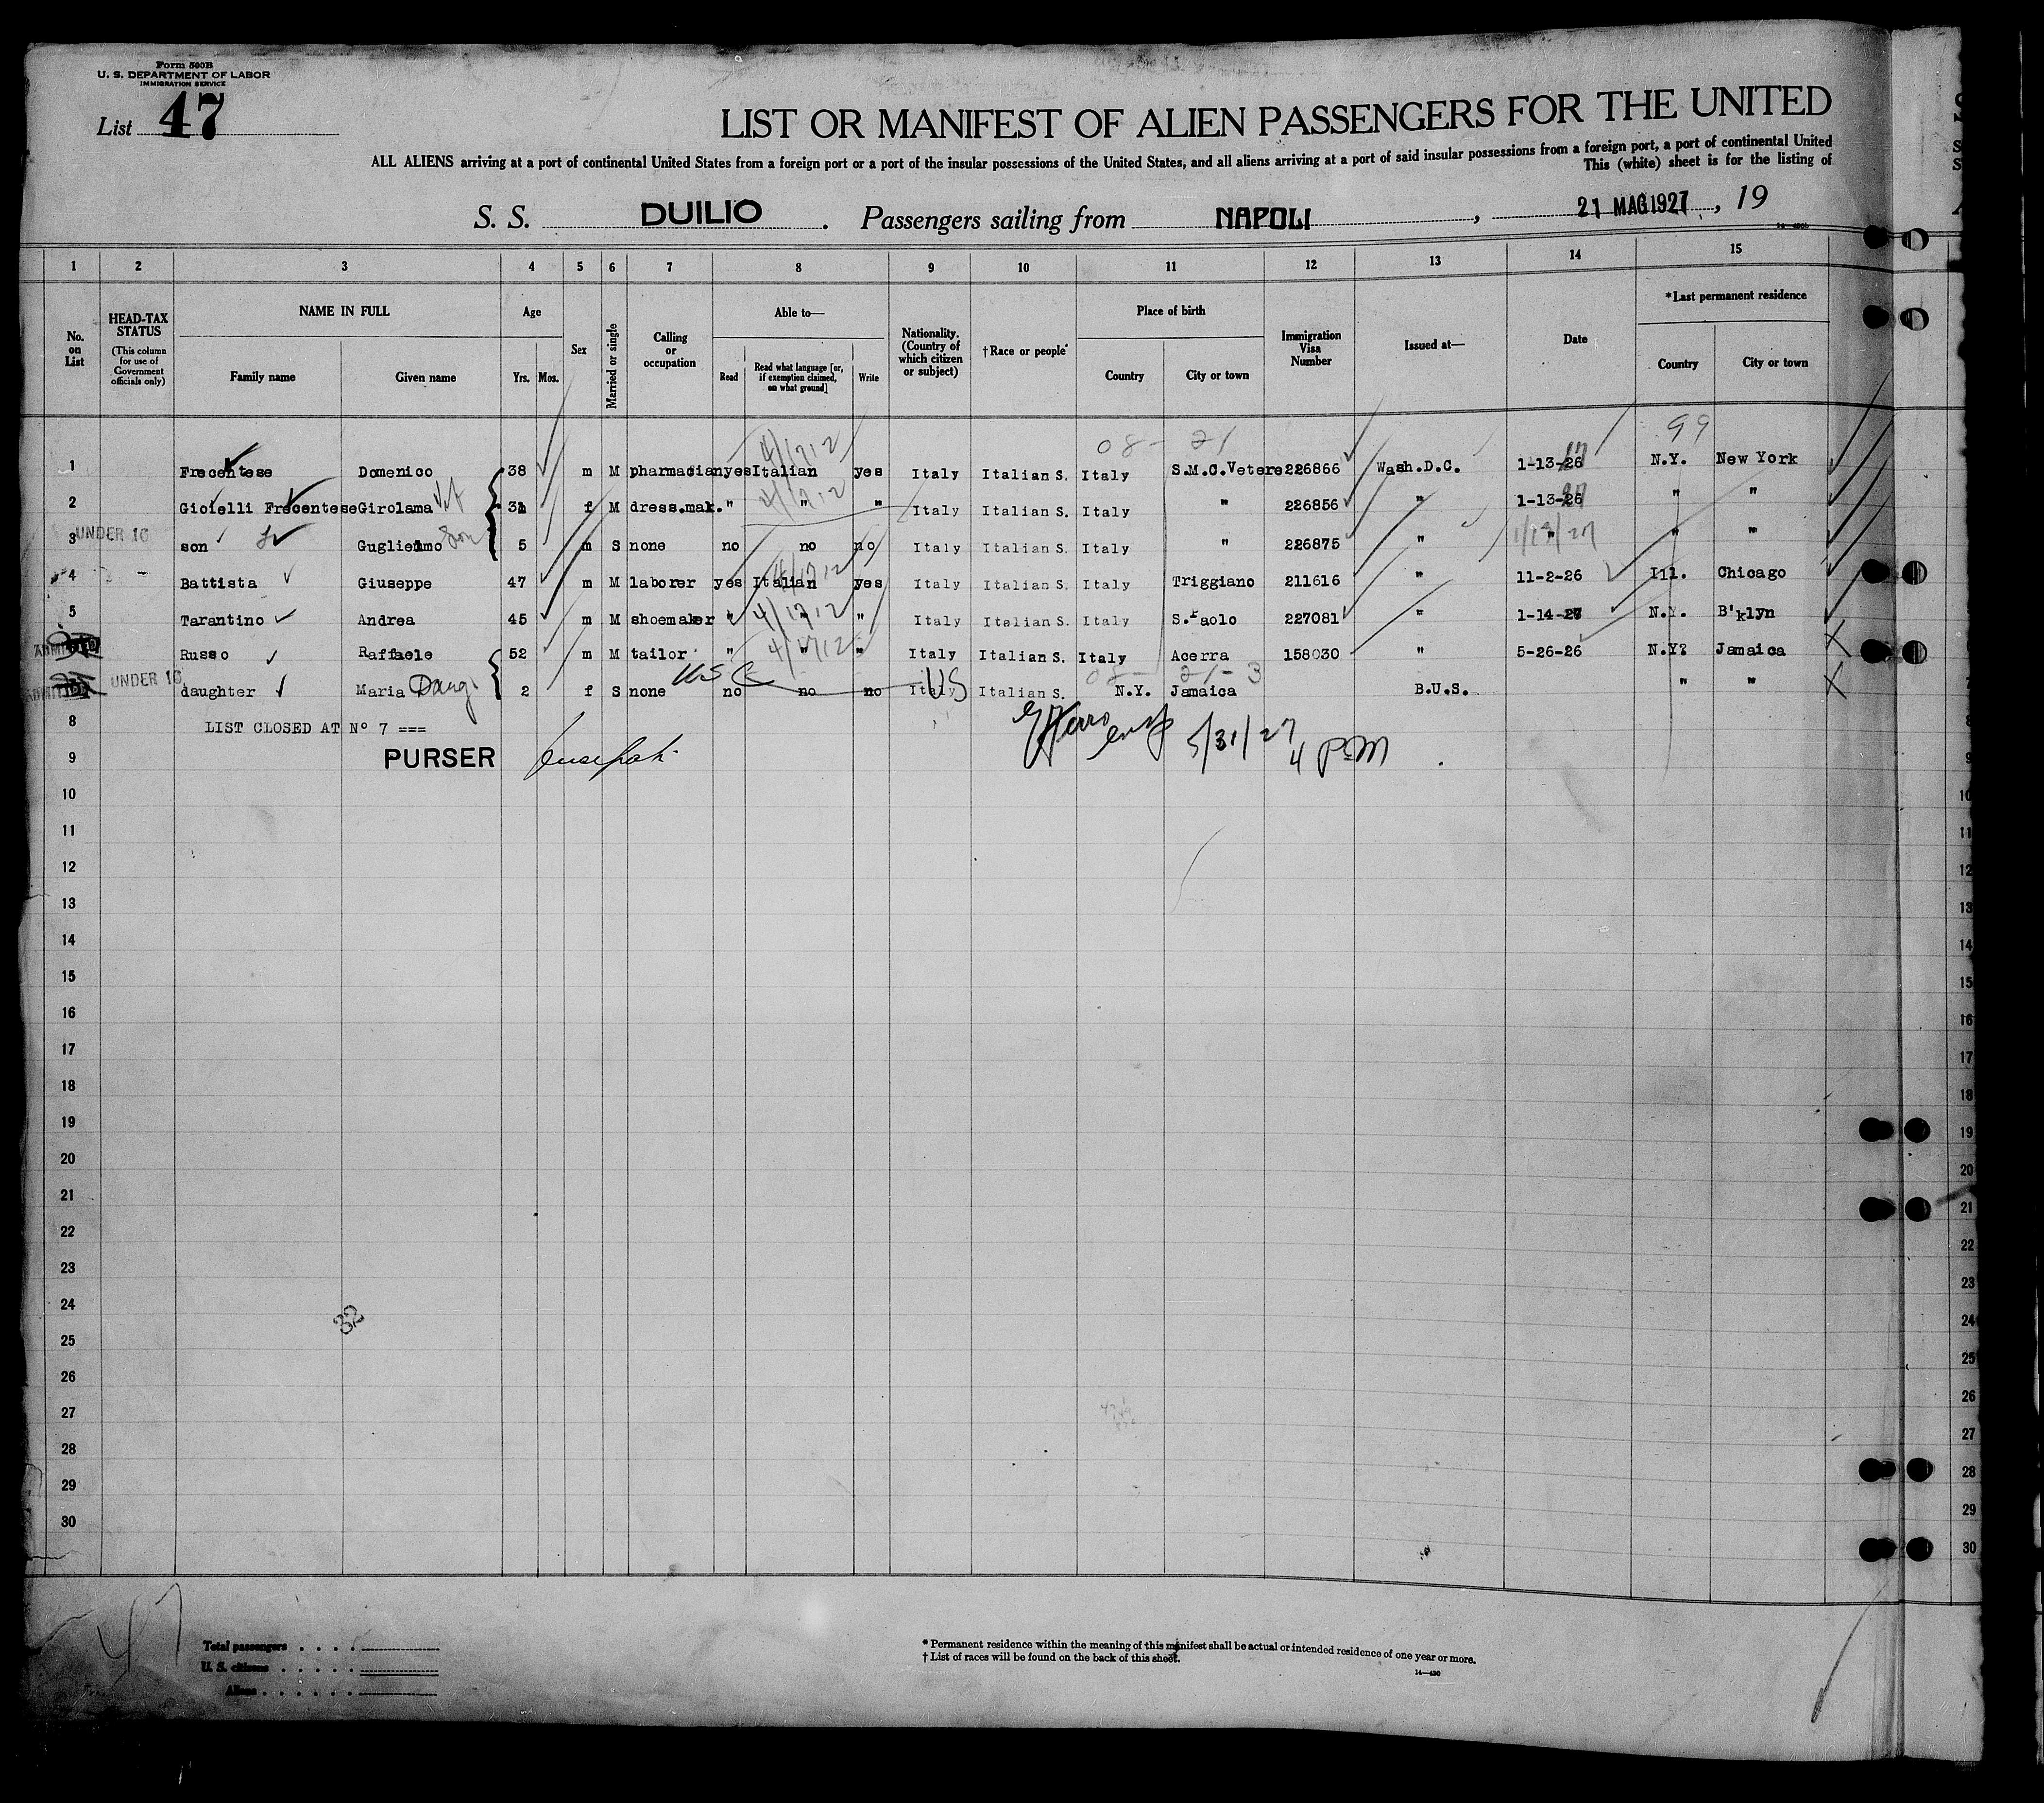 Form 500B
U. S. DEPARTMENT OF LABOR
IMMIGRATION SERVICE
List 47
LIST OR MANIFEST OF ALIEN PASSENGERS FOR THE UNITED
ALL ALIENS arriving at a port of continental United States from a foreign port or a port of the insular possessions of the United States, and all aliens arriving at a port of said insular possessions from a foreign port, a port of continental United
This (white) sheet is for the listing of
S. S. DUILIO . Passengers sailing from NAPOLI , 21 MAG 1927 , 19
1 2 3 4 5 6 7 8 9 10 11 12 13 14 15
No. on List
HEAD-TAX STATUS
(This column for use of Government officials only)
NAME IN FULL
Family name Given name
Age
Yrs. Mos.
Sex
Married or single
Calling or occupation
Able to—
Read
Read what language [or, if exemption claimed, on what ground]
Write
Nationality. (Country of which citizen or subject)
†Race or people
Place of birth
Country City or town
Immigration Visa Number
Issued at—
Date
*Last permanent residence
Country City or town
08- 21 99
1 Frecentese Domenico 38 m M pharmacian yes Italian yes Italy Italian S. Italy S.M.C.Vetere 226866 Wash.D.C. 1-13-26 N.Y. New York
2 Gioielli Frecentese Girolama 31 f M dress.mak. " " " Italy Italian S. Italy " 226856 " 1-13-26 " "
UNDER 16
3 son Guglielmo son 5 m S none no no no Italy Italian S. Italy " 226875 " " 1/13/27 " "
4 Battista Giuseppe 47 m M laborer yes Italian yes Italy Italian S. Italy Triggiano 211616 " 11-2-26 Ill. Chicago
5 Tarantino Andrea 45 m M shoemaker " " " Italy Italian S. Italy S.Paolo 227081 " 1-14-27 N.Y. B'klyn
ADMITTED Russo Raffaele 52 m M tailor " " " Italy Italian S. Italy Acerra 158030 " 5-26-26 N.Y? Jamaica
ADMITTED UNDER 16 daughter Maria Daug. 2 f S none USC no no no Italy US Italian S. N.Y. Jamaica B.U.S. " "
8 LIST CLOSED AT Nº 7 ===
5/31/27
4 PM
9 PURSER
10
11
12
13
14
15
16
17
18
19
20
21
22
23
24
32
25
26
27
28
29
30
47
Total passengers
U. S. citizens
Aliens
* Permanent residence within the meaning of this manifest shall be actual or intended residence of one year or more.
† List of races will be found on the back of this sheet.
14—430